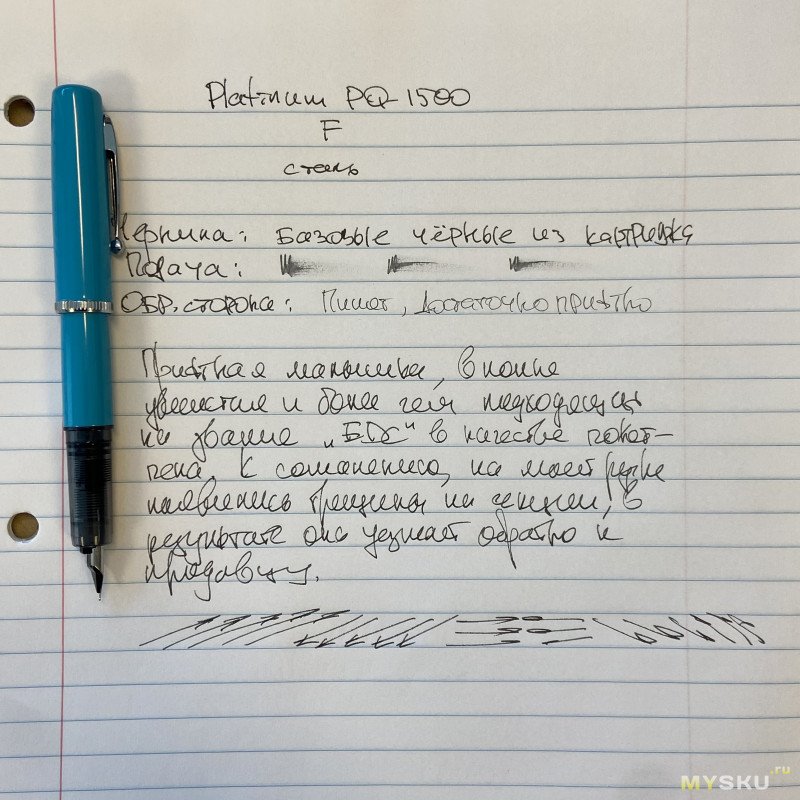 Platinum PQ-1500
F
сталь
Чернила: Базовые чёрные из картриджа
Подача:
Обр. сторона: Пишет, достаточно приятно
Приятная малышка, вполне
увесистая и более чем подходящая
на звание „EDC“ в качестве покет-
пена. К сожалению, на моей ручке
появились трещины на секции, в
результате она уезжает обратно к
продавцу.
MYSKU.ru